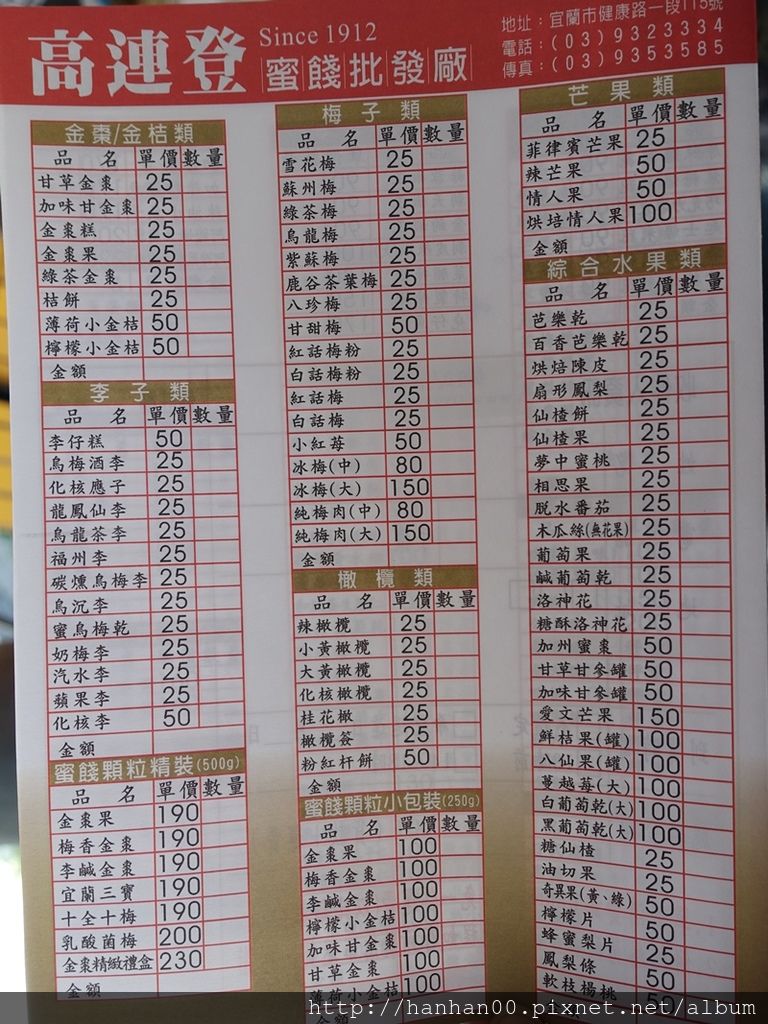 高連登
Since 1912
蜜餞批發廠
地址：宜蘭市健康路一段115號
電話：(03)9323334
傳真：(03)9353585
金棗/金桔類
品 名 單價 數量
甘草金棗 25
加味甘金棗 25
金棗糕 25
金棗果 25
綠茶金棗 25
桔餅 25
薄荷小金桔 50
檸檬小金桔 50
金額
李子類
品 名 單價 數量
李仔糕 50
烏梅酒李 25
化核應子 25
龍鳳仙李 25
烏龍茶李 25
福州李 25
碳燻烏梅李 25
烏沉李 25
蜜烏梅乾 25
奶梅李 25
汽水李 25
蘋果李 25
化核李 50
金額
蜜餞顆粒精裝(500g)
品 名 單價 數量
金棗果 190
梅香金棗 190
李鹹金棗 190
宜蘭三寶 190
十全十梅 190
乳酸菌梅 200
金棗精緻禮盒 230
金額
梅子類
品 名 單價 數量
雪花梅 25
蘇州梅 25
綠茶梅 25
烏龍梅 25
紫蘇梅 25
鹿谷茶葉梅 25
八珍梅 25
甘甜梅 50
紅話梅粉 25
白話梅粉 25
紅話梅 25
白話梅 25
小紅莓 50
冰梅(中) 80
冰梅(大) 150
純梅肉(中) 80
純梅肉(大) 150
金額
橄欖類
品 名 單價 數量
辣橄欖 25
小黃橄欖 25
大黃橄欖 25
化核橄欖 25
桂花橄 25
橄欖簽 25
粉紅杆餅 50
金額
蜜餞顆粒小包裝(250g)
品 名 單價 數量
金棗果 100
梅香金棗 100
李鹹金棗 100
檸檬小金桔 100
加味甘金棗 100
甘草金棗 100
薄荷小金桔 100
金額
芒果類
品 名 單價 數量
菲律賓芒果 25
辣芒果 50
情人果 50
烘培情人果 100
金額
綜合水果類
品 名 單價 數量
芭樂乾 25
百香芭樂乾 25
烘焙陳皮 25
扇形鳳梨 25
仙楂餅 25
仙楂果 25
夢中蜜桃 25
相思果 25
脱水番茄 25
木瓜絲(無花果) 25
葡萄果 25
鹹葡萄乾 25
洛神花 25
糖酥洛神花 25
加州蜜棗 50
甘草甘參罐 50
加味甘參罐 50
愛文芒果 150
鮮桔果(罐) 100
八仙果(罐) 100
蔓越莓(大) 100
白葡萄乾(大) 100
黑葡萄乾(大) 100
糖仙楂 25
油切果 25
奇異果(黃、綠) 50
檸檬片 50
蜂蜜梨片 25
鳳梨條 50
軟枝楊桃 50
http://hanhan00.pixnet.net/album